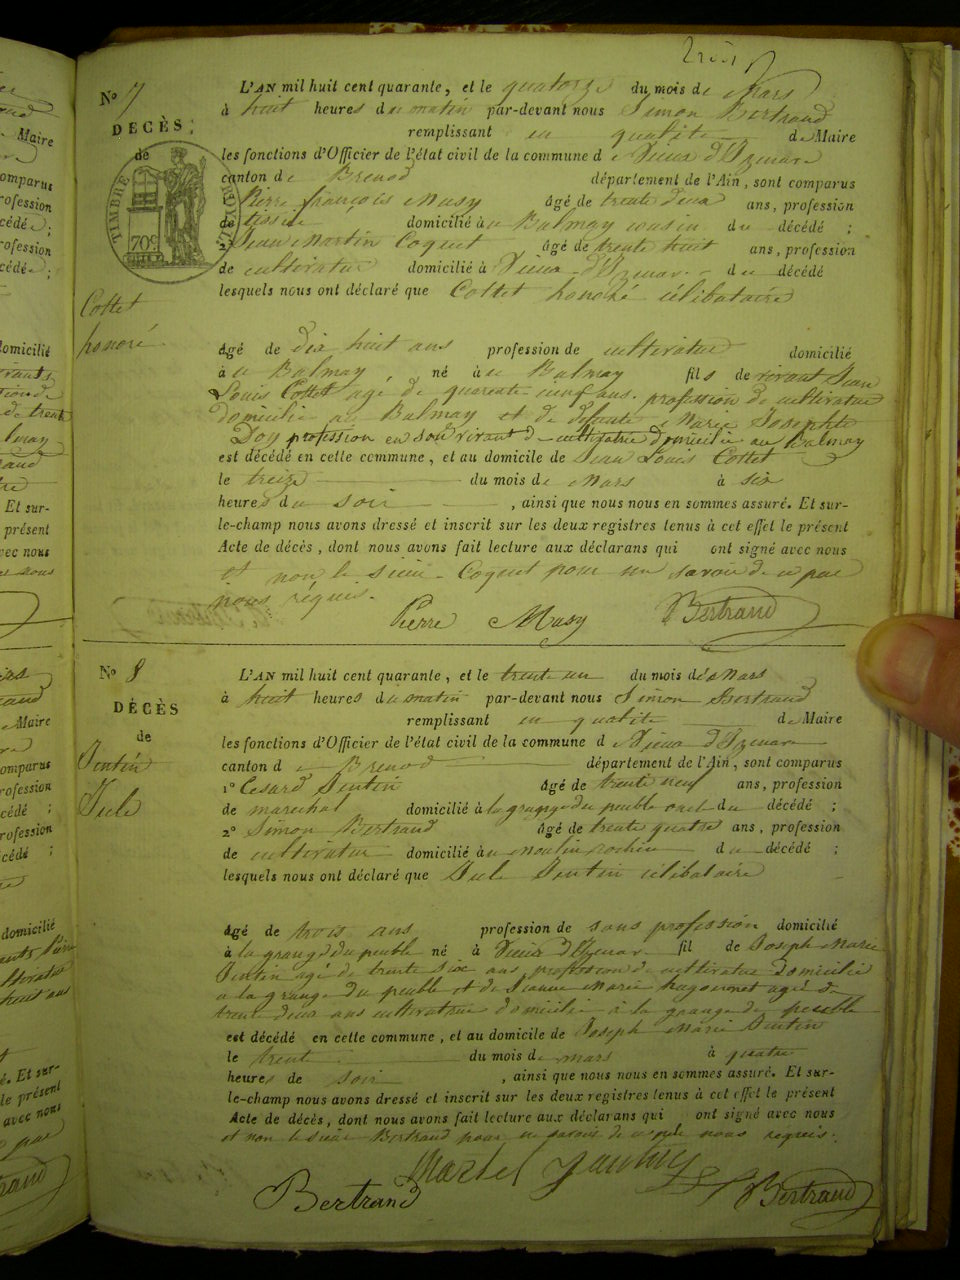 trois
N.º 7
DÉCÈS
de
TIMBRE ROYAL
70c
Cottet
honoré
L'AN mil huit cent quarante, et le quatorze du mois de Mars
à huit heures du matin par-devant nous Simon Bertrand
remplissant en qualité de Maire
les fonctions d'Officier de l'état civil de la commune de Vieux d'Izenave
canton de Brenod département de l'Ain, sont comparus
1º Pierre françois Musy âgé de trente deux ans, profession
de tissu domicilié au Balmay cousin du décédé ;
2º Jean Martin Coquet âgé de trente huit ans, profession
de cultivateur domicilié à Vieux d'Izenave du décédé
lesquels nous ont déclaré que Cottet honoré célibataire
âgé de dix huit ans profession de cultivateur domicilié
à au Balmay né à au Balmay fils de vivant Jean
Louis Cottet agé de quarente neuf ans, profession de cultivateur
domicilié au Balmay et de défunte Marie Josephte
Doy profession en son vivant de cultivatrice domiciliée au Balmay
est décédé en cette commune, et au domicile de Jean Louis Cottet
le treize du mois de Mars à six
heures du soir , ainsi que nous nous en sommes assuré. Et sur-
le-champ nous avons dressé et inscrit sur les deux registres tenus à cet effet le présent
Acte de décès, dont nous avons fait lecture aux déclarans qui ont signé avec nous
et non le sieur Coquet pour ne savoir de ce par
nous réquis.
Pierre Musy Bertrand
N.º 8
DÉCÈS
de
Jentin
Jule
L'AN mil huit cent quarante, et le trente un du mois de Mars
à huit heures du matin par-devant nous Simon Bertrand
remplissant en qualité de Maire
les fonctions d'Officier de l'état civil de la commune de Vieux d'Izenave
canton de Brenod département de l'Ain, sont comparus
1º Cesard Jentin âgé de trente neuf ans, profession
de marechal domicilié à la grange du peuble oncle du décédé ;
2º Simon Bertrand âgé de trente quatre ans, profession
de cultivateur domicilié au Moulin du décédé ;
lesquels nous ont déclaré que Jule Jentin célibataire
âgé de trois ans profession de sans profession domicilié
à la grange du peuble né à Vieux d'Izenave fil de Joseph Marie
Jentin agé de trente six ans profession de cultivateur domicilié
a la grange du peuble et de Jeanne Marie hugonnet agée de
trente deux ans cultivatrice domicilié à la grange du peuble
est décédé en cette commune, et au domicile de Joseph Marie Jentin
le trent du mois de mars à quatre
heures de soir , ainsi que nous nous en sommes assuré. Et sur-
le-champ nous avons dressé et inscrit sur les deux registres tenus à cet effet le présent
Acte de décès, dont nous avons fait lecture aux déclarans qui ont signé avec nous
et non le sieur Bertrand pour ne savoir de ce par nous requis.
Bertrand Bertrand